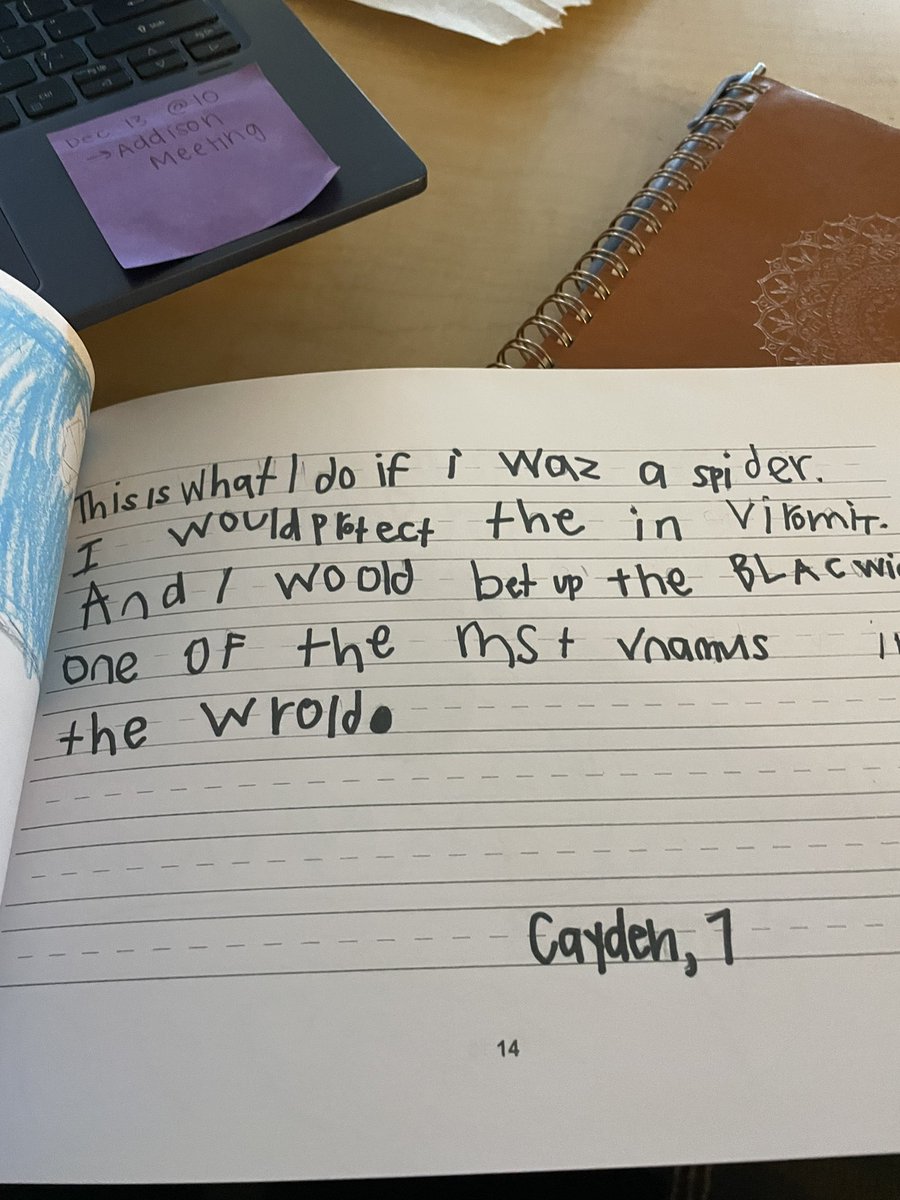 Dec 13 @10
→Addison
Meeting
This is what I do if i waz a spider.
I would protect the in viromit.
And I woold bet up the BLAC
one of the mst vnamus
the wrold.
Cayden, 7
14